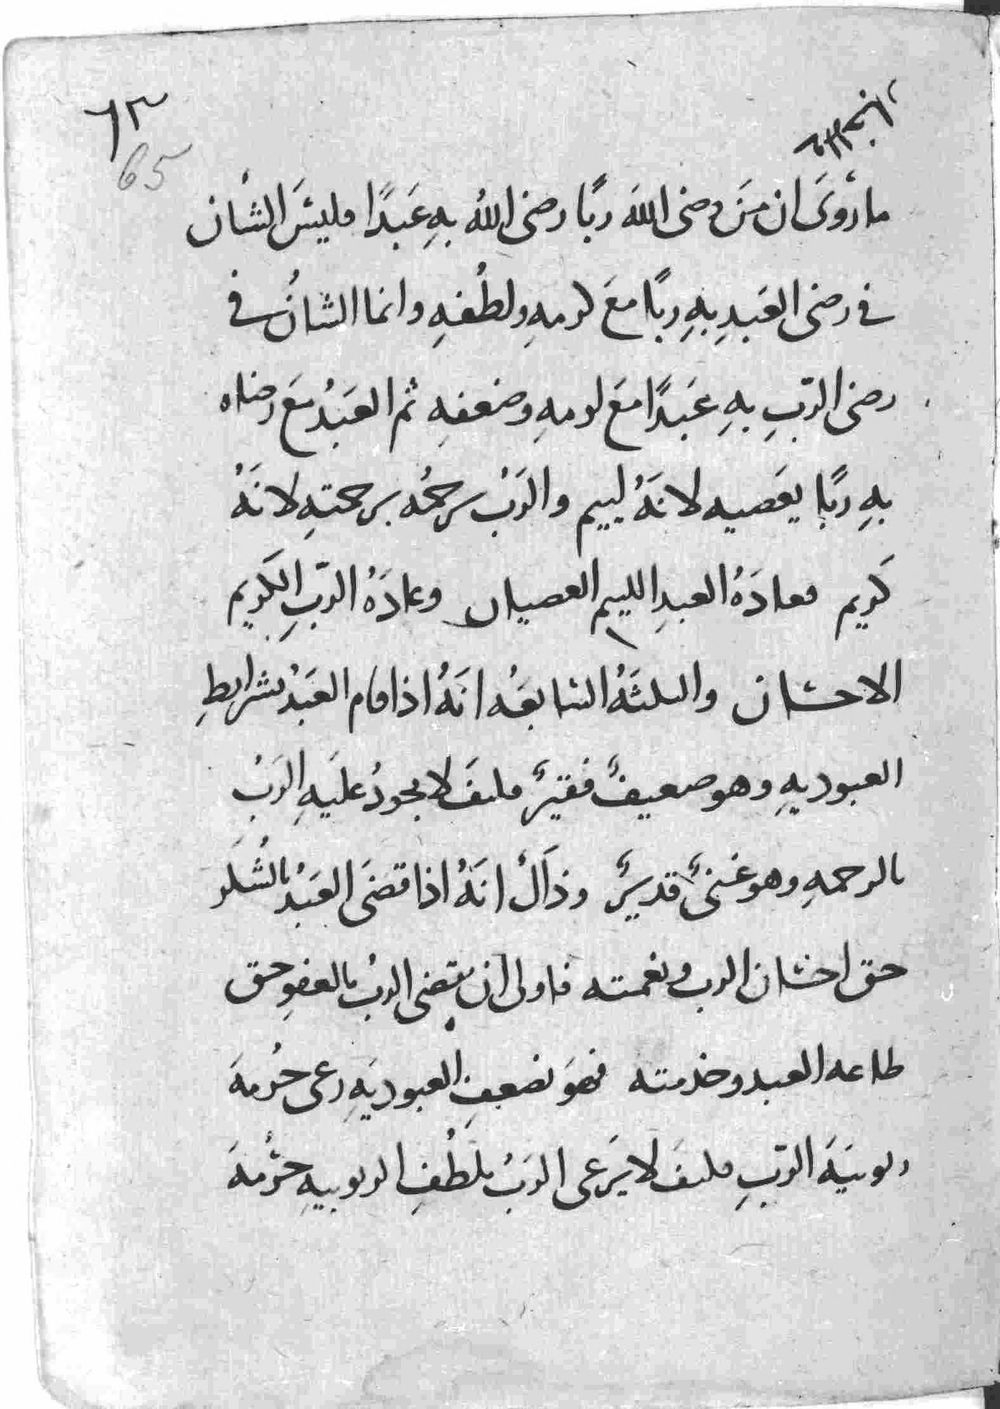 ٦٣
65
ما رُوىَ ان مَن رضى اللهَ ربًا رضى اللهُ بهِ عَبدًا فليسَ الشأن
فى رضى العَبدِ بهِ ربًا معَ كرمهِ ولطُفهِ وانما الشانُ فى
رضى الرّبِ بهِ عَبدًا معَ لومهِ وضعفهِ ثم العَبدُ مَع رضاه
بهِ ربًا يعَصيه لانهُ لييم والرَبُ يرحمُه برحمتهِ لانهُ
كَريم فعادَهُ العبدِ اللييم العصيان وعادَهُ الرّبِ الكَريم
الاحسان والثلثَهُ السابعَه انهُ اذا قام العَبدُ بشرايطِ
العبوديهِ وهو ضعيفٌ فقيرٌ فكيفَ لا يجودُ عليَهِ الرَبُ
بالرحمهِ وهو غنىٌ قديرٌ وذلكَ انهُ اذا قضَى العَبدُ بالشُكر
حق احسان الرب ونعمته فاولى ان يقضى الربُ بالعفوِ حق
طاعه العبد وخدمته فهوَ بضعفِ العبوديَهِ رعى حُرمهَ
ربوبيَهَ الرّبِ فكيفَ لا يَرعى الرَبُ بلطُفِ الربوبيهِ حُرمهَ